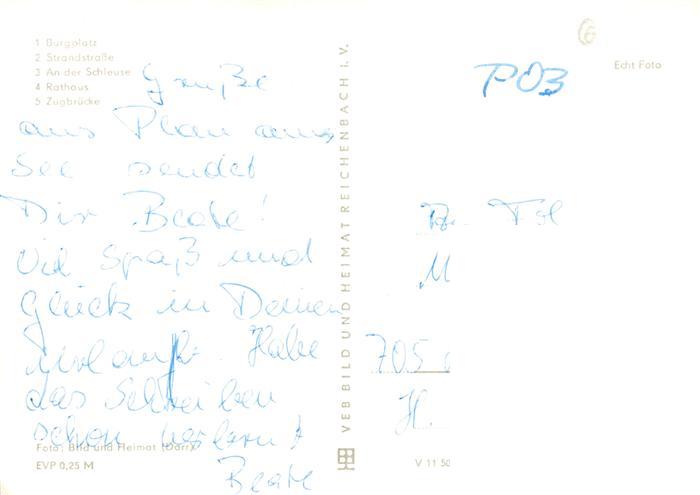 1 Burgplatz
2 Strandstraße
3 An der Schleuse
4 Rathaus
5 Zugbrücke
Grüße
aus Plau am
See sendet
Dir Beate!
Viel Spaß und
Glück in Deinem
Urlaub. Habe
das Schreiben
schon verlernt
Beate
Foto: Bild und Heimat (Darr)
EVP 0,25 M
VEB BILD UND HEIMAT REICHENBACH I. V.
Echt Foto
P03
M
705
H.
V 11 50